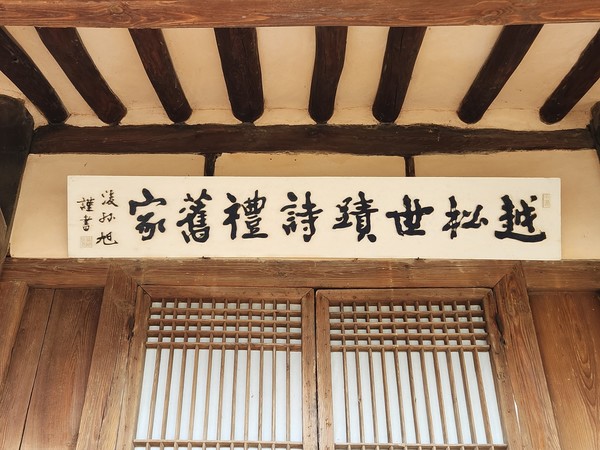 越松世蹟詩禮舊家
後孫 旭
謹書